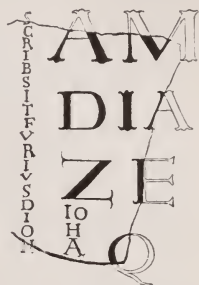 SCRIBSITFVRIVSDION
AM
DIA
ZE
IO
H
A
Q